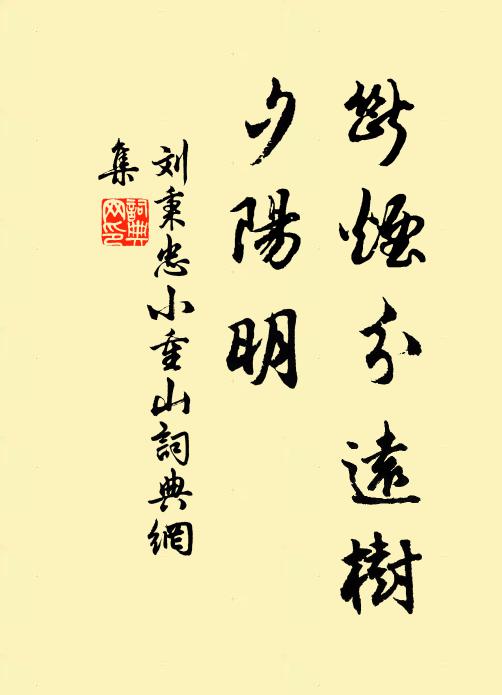 斷煙分遠樹
夕陽明
刘秉忠小重山詞典網
集
詞典
网印